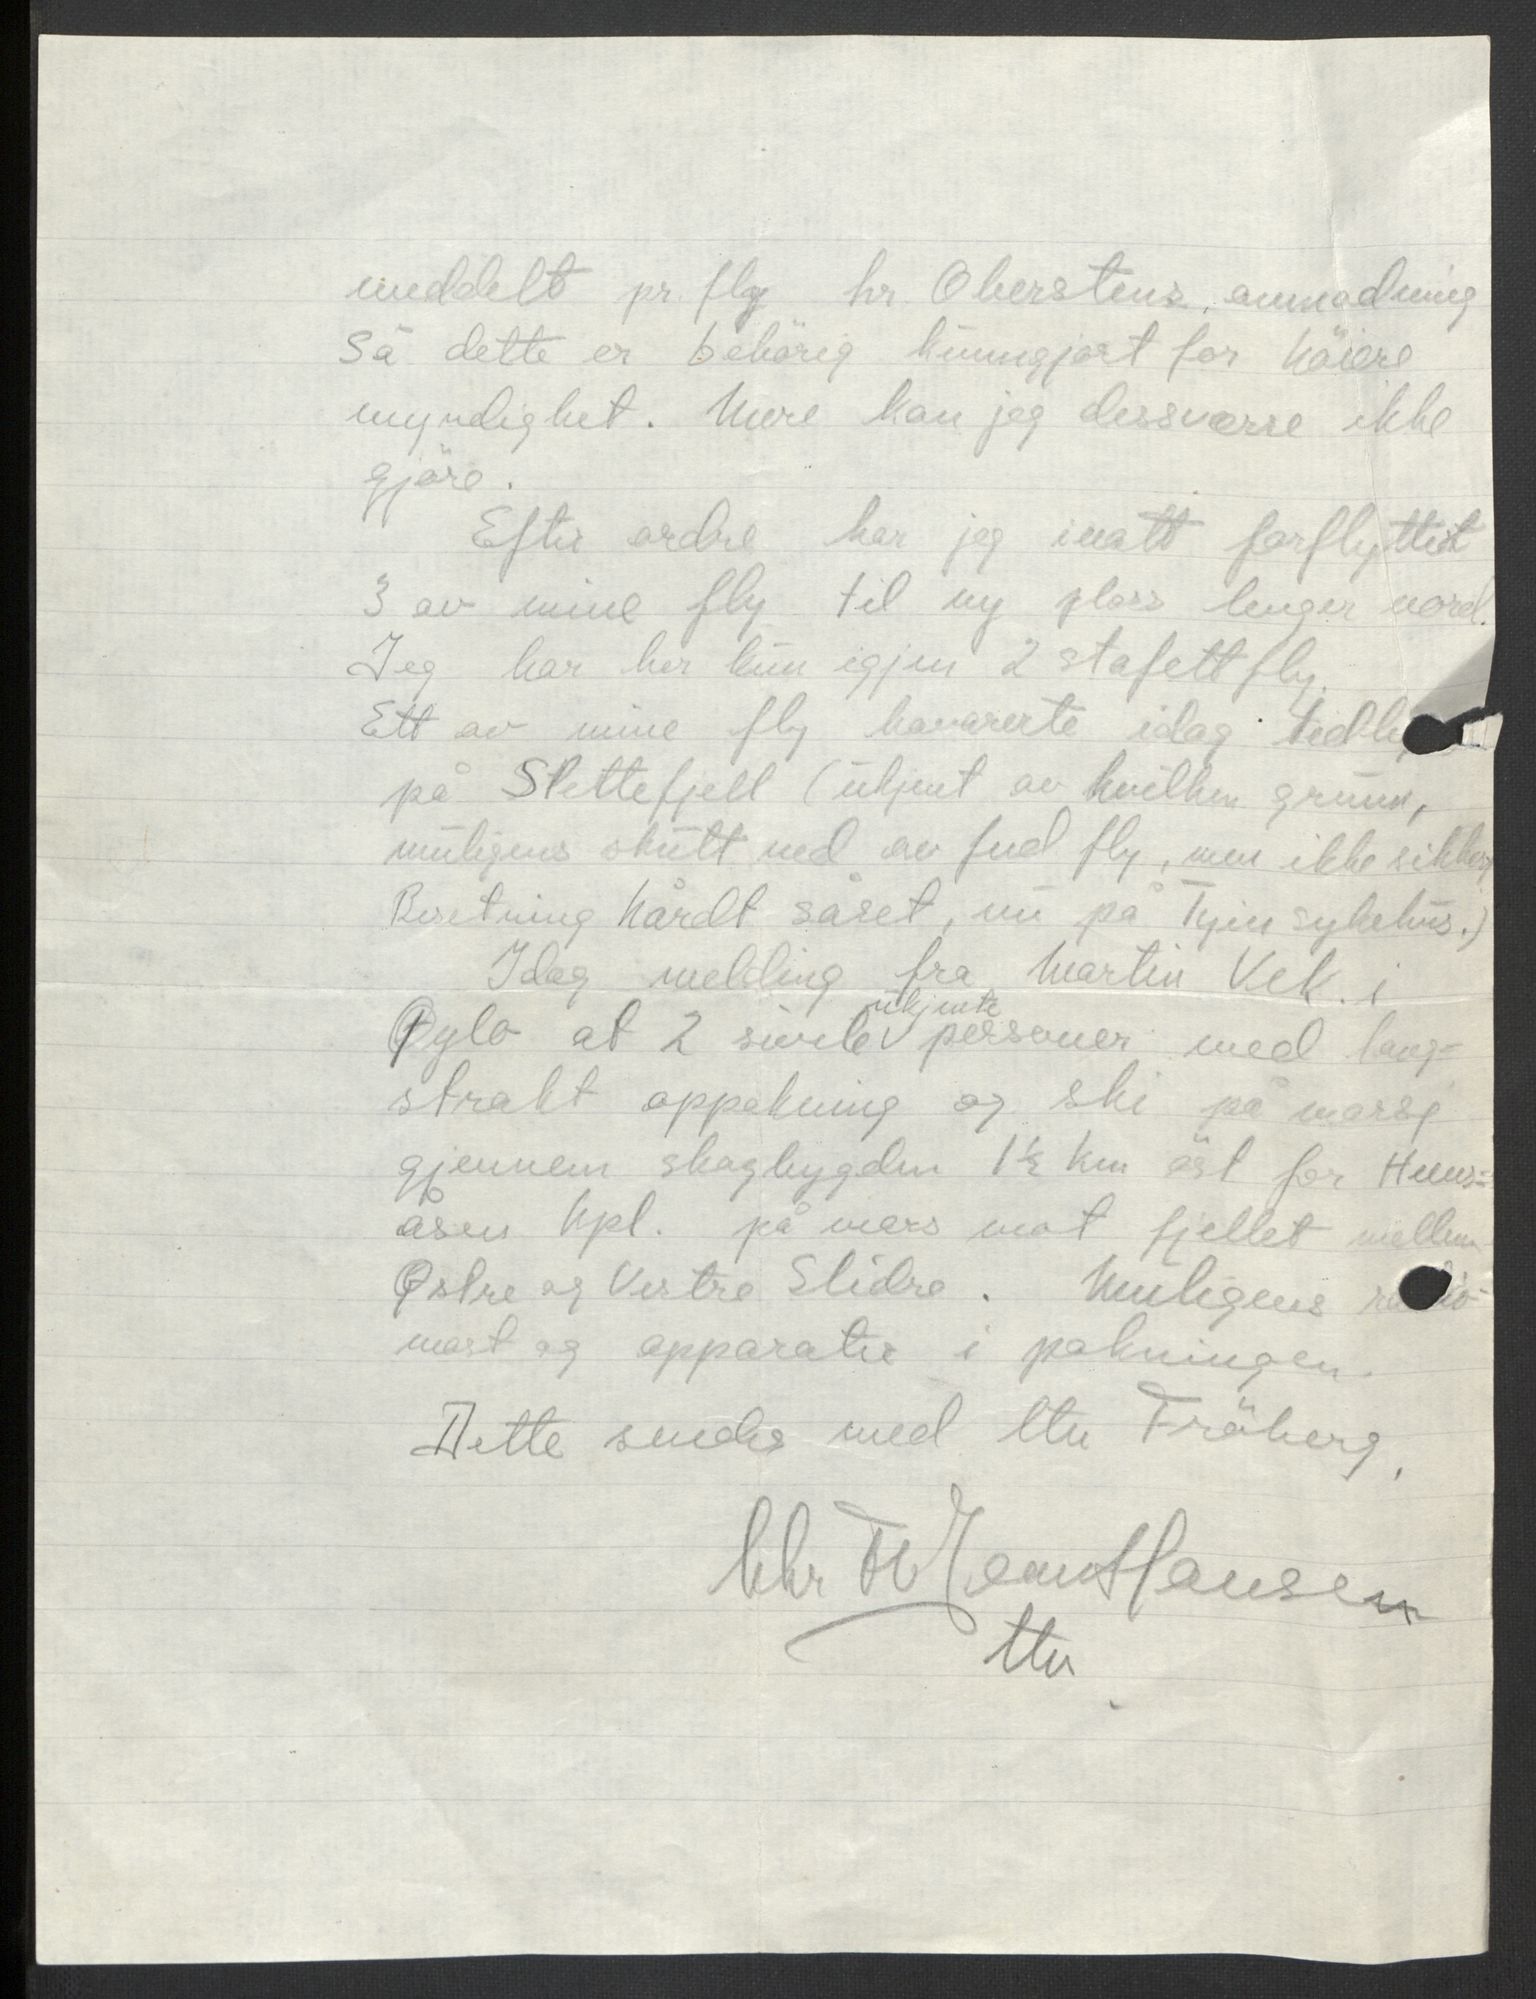 meddelt pr. fly hr. Oberstens anmodning
Så dette er behörig kunngjort for höiere
myndighet. Mere kan jeg dessværre ikke
gjöre.
Efter ordre har jeg inatt forflyttet
3 av mine fly til ny plass lenger nord.
Jeg har her kun igjen 2 stafettfly.
Ett av mine fly havarerte idag
på Slettefjell (ukjent av hvilken grunn,
muligens skutt ned av fiendl fly, men ikke sikkert
Besetning hårdt såret, nu på Tyin sykehus.)
Idag melding fra Martin Vek. i
Øylo at 2 sivile ukjente personer med lang-
strakt oppakning og ski på marsj
gjennem skogbygden 1½ km öst for
åsen hpl. på mars mot fjellet mellem
Østre og Vestre Slidre. Muligens radio
mast og apparater i pakningen.
Dette sendes med ltn Fröberg.
Chr Fr Jean Hansen
ltn